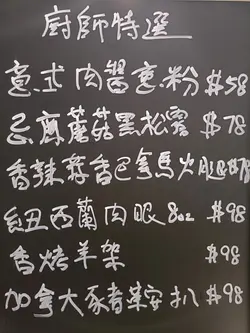 廚師特選
意式肉醬意粉 $58
忌廉蘑菇黑松露 $78
香辣蒜香巴拿馬火腿 $78
紐西蘭肉眼 8oz $98
香烤羊架 $98
加拿大豕鞍扒 $98